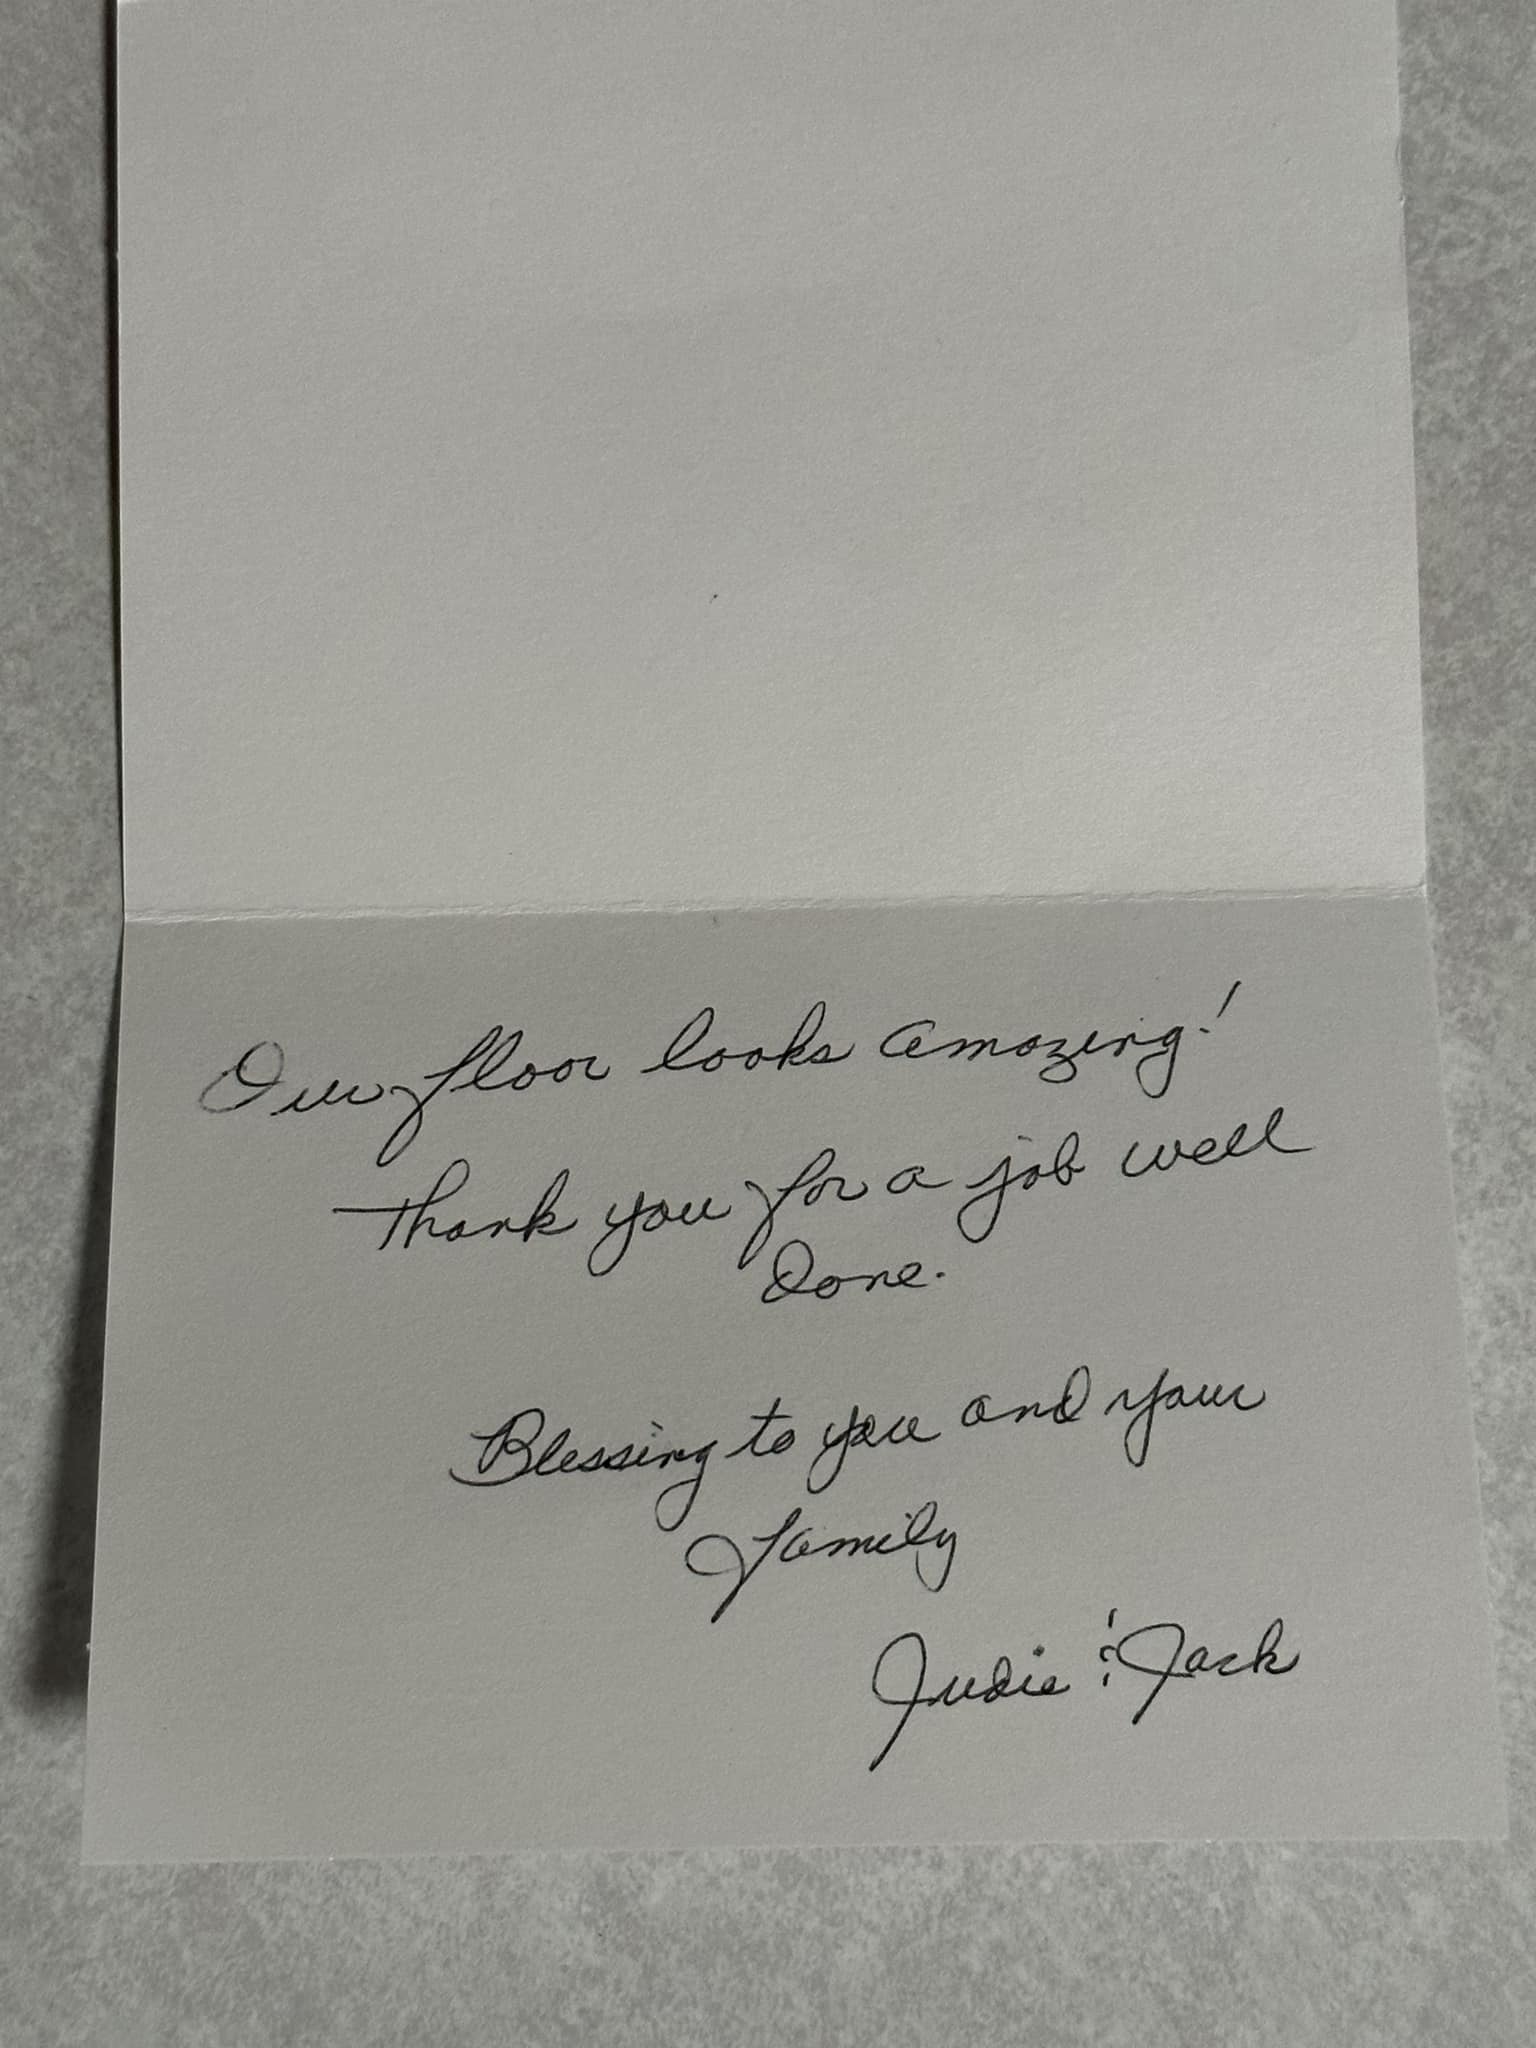 Our floor looks amazing!
Thank you for a job well
Done.
Blessing to you and your
family
Judie & Jack